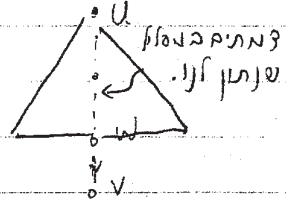 U
צמתים במסלול
שנתון לנו.
W
V